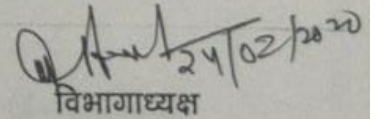 24/02/2020
विभागाध्यक्ष